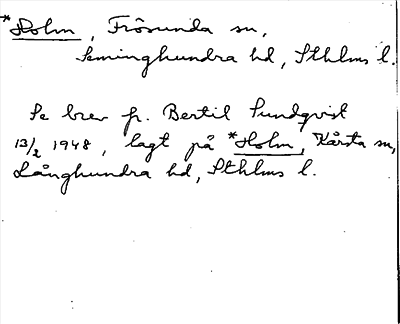 *Holm, Frösunda sn,
Seminghundra hd, Sthlms l.
Se brev fr. Bertil Sundqvist
13/2 1948, lagt på *Holm, Kårsta sn,
Långhundra hd, Sthlms l.